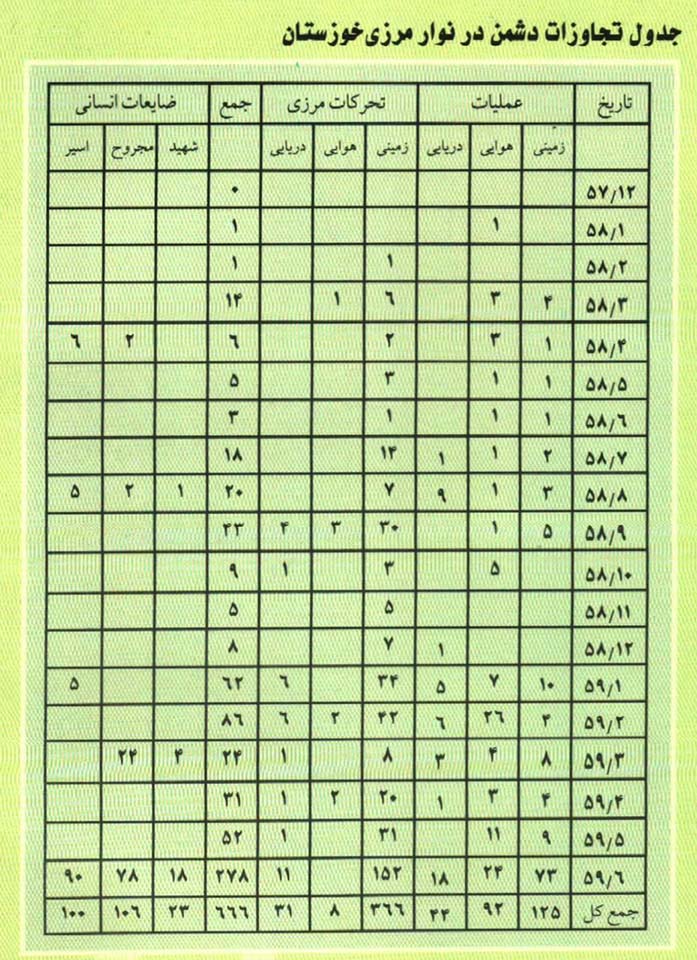 جدول تجاوزات دشمن در نوار مرزی خوزستان
تاریخ عملیات تحرکات مرزی جمع ضایعات انسانی
زمینی هوایی دریایی زمینی هوایی دریایی شهید مجروح اسیر
۵۷/۱۲ ۰
۵۸/۱ ۱ ۱
۵۸/۲ ۱ ۱
۵۸/۳ ۴ ۳ ۶ ۱ ۱۴
۵۸/۴ ۱ ۳ ۲ ۶ ۲ ۶
۵۸/۵ ۱ ۱ ۳ ۵
۵۸/۶ ۱ ۱ ۱ ۳
۵۸/۷ ۲ ۱ ۱ ۱۴ ۱۸
۵۸/۸ ۳ ۱ ۹ ۷ ۲۰ ۱ ۲ ۵
۵۸/۹ ۵ ۱ ۳۰ ۳ ۴ ۴۳
۵۸/۱۰ ۵ ۳ ۱ ۹
۵۸/۱۱ ۵ ۵
۵۸/۱۲ ۱ ۷ ۸
۵۹/۱ ۱۰ ۷ ۵ ۳۴ ۶ ۶۲ ۵
۵۹/۲ ۴ ۲۶ ۶ ۴۲ ۲ ۶ ۸۶
۵۹/۳ ۸ ۴ ۳ ۸ ۱ ۲۴ ۴ ۲۴
۵۹/۴ ۴ ۳ ۱ ۲۰ ۲ ۱ ۳۱
۵۹/۵ ۹ ۱۱ ۳۱ ۱ ۵۲
۵۹/۶ ۷۳ ۲۴ ۱۸ ۱۵۲ ۱۱ ۲۷۸ ۱۸ ۷۸ ۹۰
جمع کل ۱۲۵ ۹۲ ۴۴ ۳۶۶ ۸ ۳۱ ۶۶۶ ۲۳ ۱۰۶ ۱۰۰